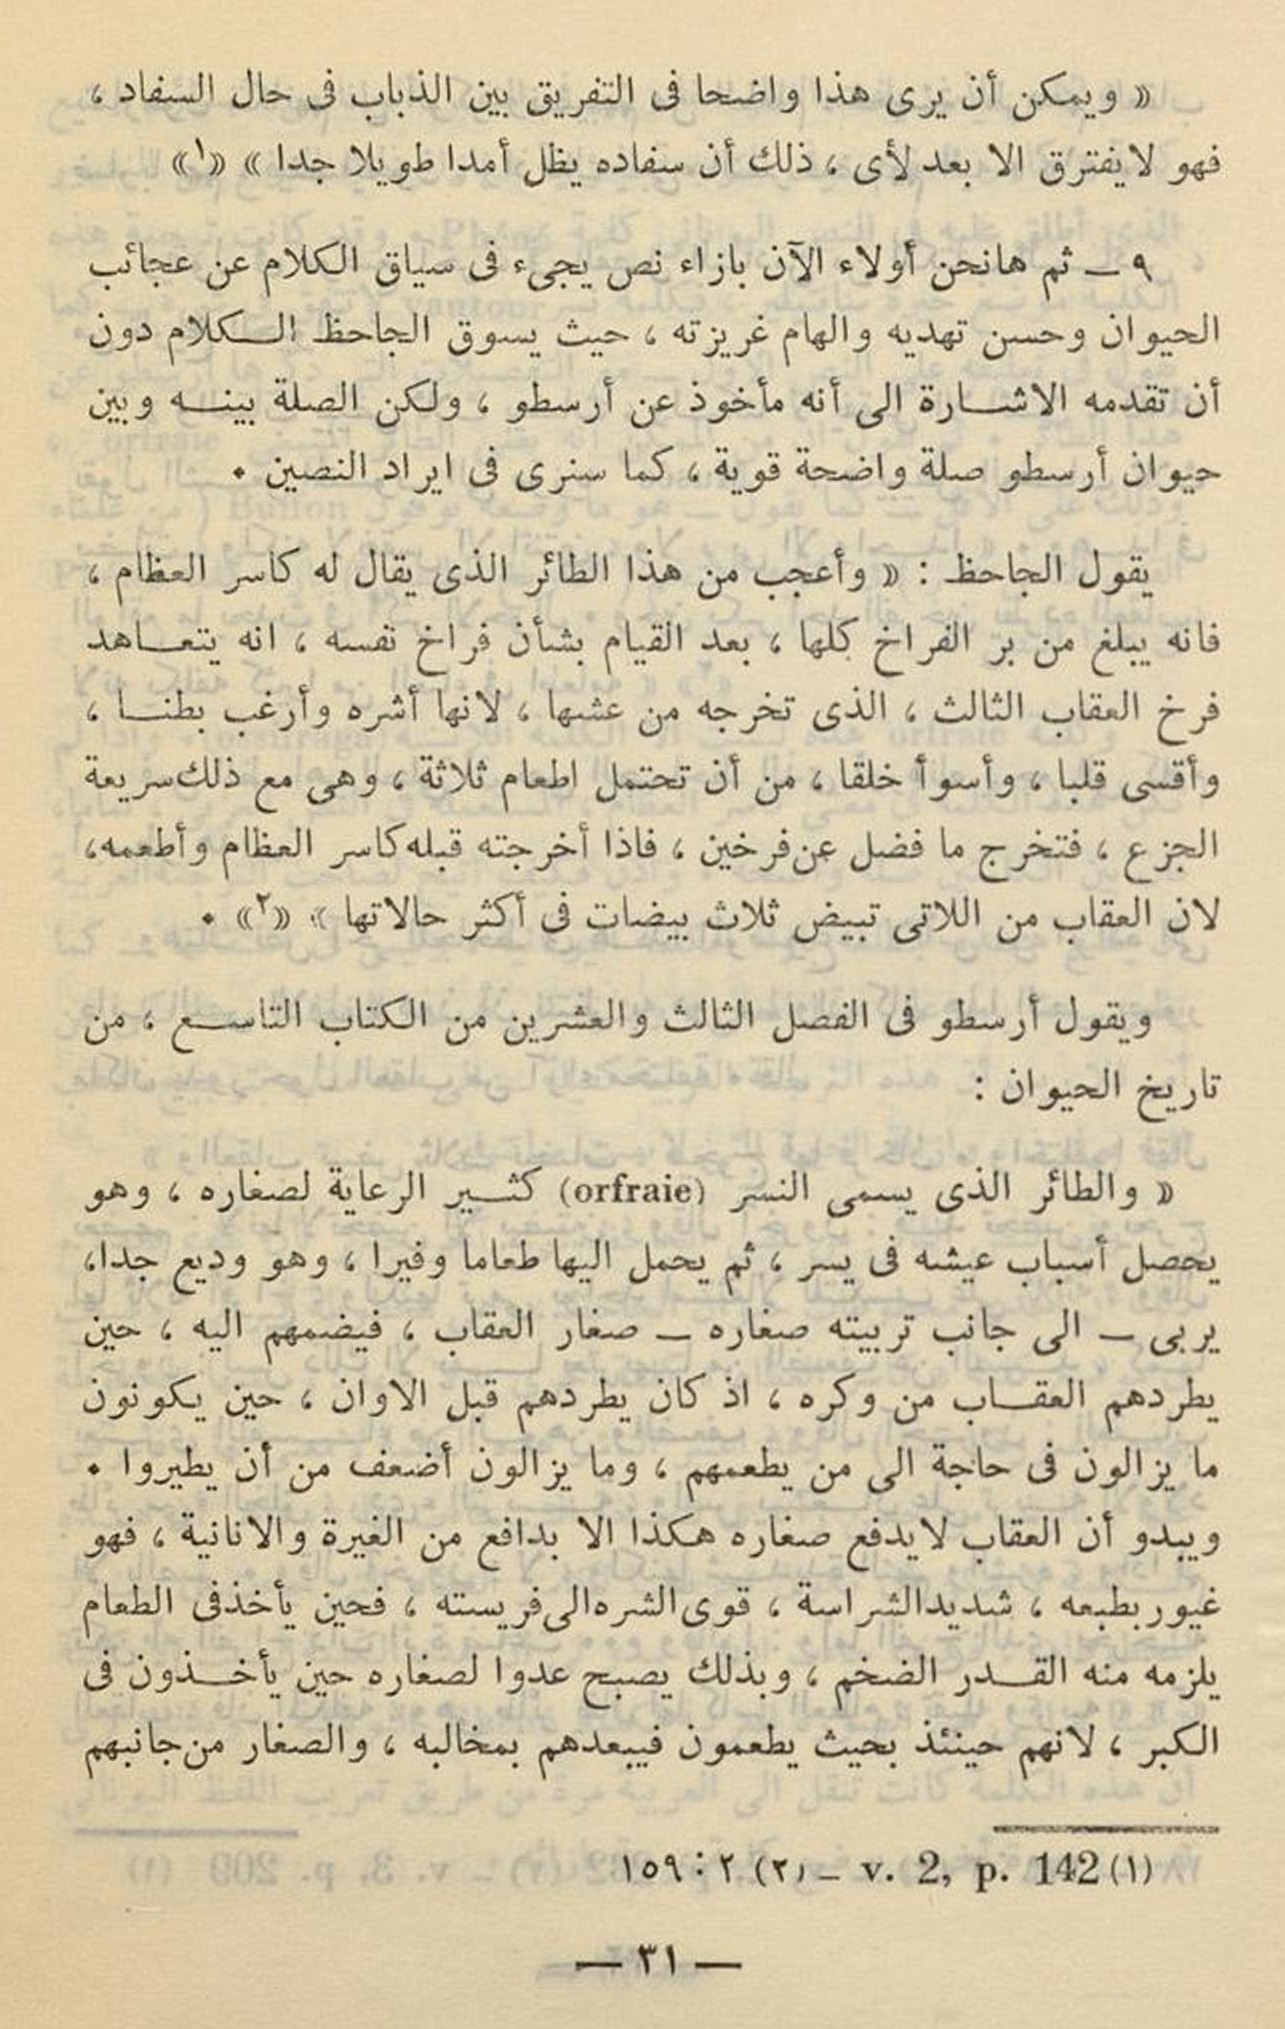 « ويمكن أن يرى هذا واضحا فى التفريق بين الذباب فى حال السفاد ،
فهو لايفترق الا بعد لأى ، ذلك أن سفاده يظل أمدا طويلا جدا » «١»
٩ ــ ثم هانحن أولاء الآن بازاء نص يجىء فى سياق الكلام عن عجائب
الحيوان وحسن تهديه والهام غريزته ، حيث يسوق الجاحظ الـكلام دون
أن تقدمه الاشـارة الى أنه مأخوذ عن أرسطو ، ولكن الصلة بينـه وبين
حيوان أرسطو صلة واضحة قوية ، كما سنرى فى ايراد النصين .
يقول الجاحظ : « وأعجب من هذا الطائر الذى يقال له كاسر العظام ،
فانه يبلغ من بر الفراخ كلها ، بعد القيام بشأن فراخ نفسه ، انه يتعـاهد
فرخ العقاب الثالث ، الذى تخرجه من عشها ، لانها أشره وأرغب بطنـا ،
وأقسى قلبا ، وأسوأ خلقا ، من أن تحتمل اطعام ثلاثة ، وهى مع ذلك سريعة
الجزع ، فتخرج ما فضل عن فرخين ، فاذا أخرجته قبله كاسر العظام وأطعمه،
لان العقاب من اللاتى تبيض ثلاث بيضات فى أكثر حالاتها » «٢» .
ويقول أرسطو فى الفصل الثالث والعشرين من الكتاب التاسـع ، من
تاريخ الحيوان :
« والطائر الذى يسمى النسر (orfraie) كثـير الرعاية لصغاره ، وهو
يحصل أسباب عيشه فى يسر ، ثم يحمل اليها طعاما وفيرا ، وهو وديع جدا،
يربى ــ الى جانب تربيته صغاره ــ صغار العقاب ، فيضمهم اليه ، حين
يطردهم العقـاب من وكره ، اذ كان يطردهم قبل الاوان ، حين يكونون
ما يزالون فى حاجة الى من يطعمهم ، وما يزالون أضعف من أن يطيروا .
ويبدو أن العقاب لايدفع صغاره هكذا الا بدافع من الغيرة والانانية ، فهو
غيور بطبعه ، شديد الشراسة ، قوى الشره الى فريسته ، فحين يأخذ فى الطعام
يلزمه منه القـدر الضخم ، وبذلك يصبح عدوا لصغاره حين يأخـذون فى
الكبر ، لانهم حينئذ بحيث يطعمون فيبعدهم بمخالبه ، والصغار من جانبهم
(١) v. 2, p. 142 ــ (٢) ٢ : ١٥٩
— ٣١ —